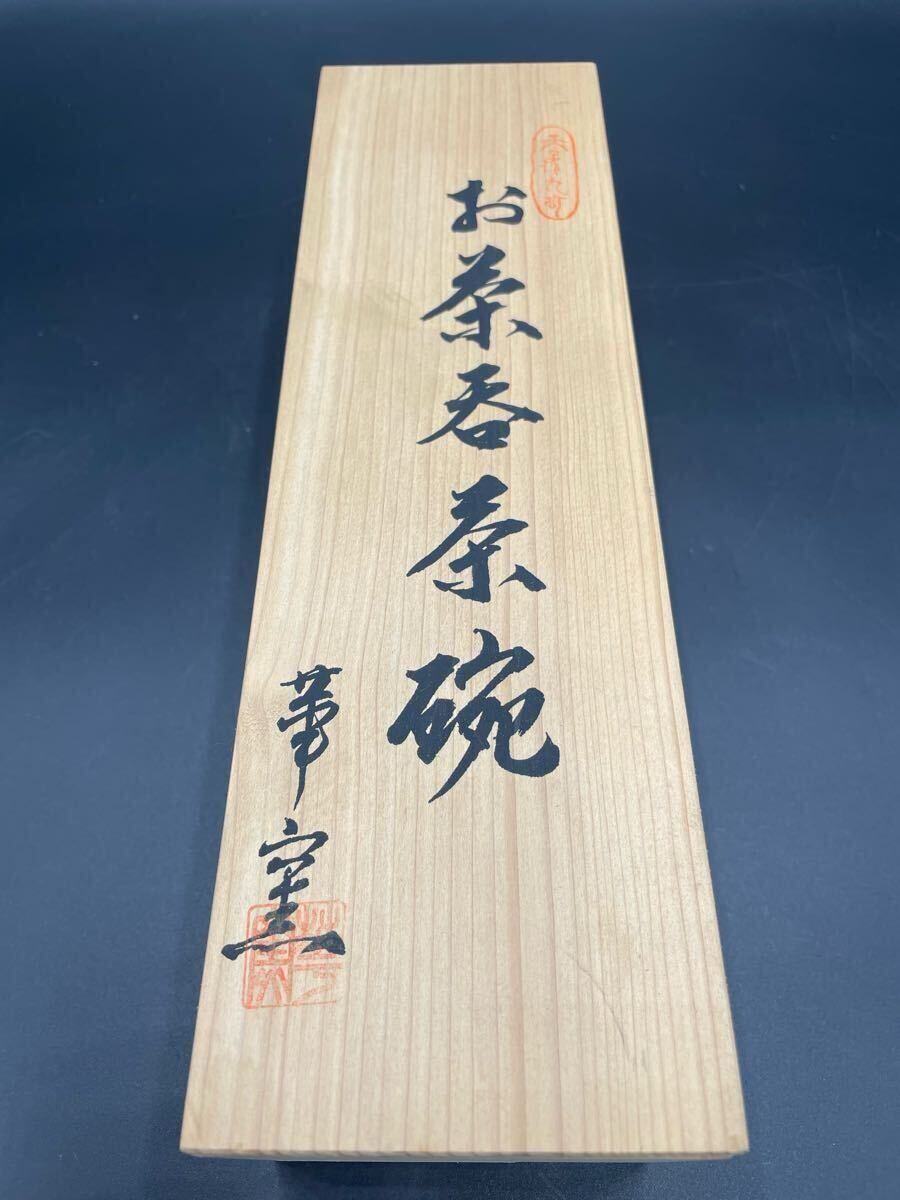 お茶呑茶碗
華窯